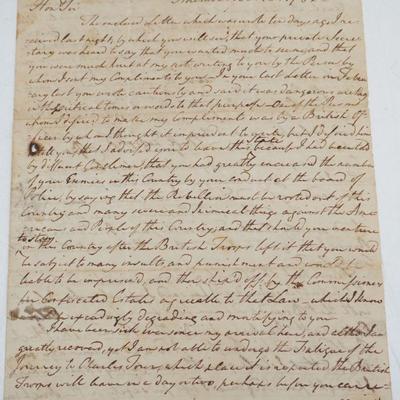 Hon. Sir
The inclosed Letter which was wrote ten days ago, I re-
ceived last night, by which you will see, that your private Secre-
tary was heard to say that you wanted much to see me, and that
you were much hurt at my not writing to you by the Person by
whom I sent my Compliments to you. In your last letter in
last you wrote cautiously and said it was dangerous writing
in political times or words to that purpose. One of the Persons
whom I desired to make my compliments was by a British Of-
ficer by whom I thought it imprudent to write, but I desired him
to tell you that I advised you to leave the State because I had been told
by different Gentlemen that you had greatly increased the number
of your Enemies in this Country by your conduct at the board of
Police, by saying that the Rebellion must be rooted out of this
Country and many severe and inimical things against the Ame-
ricans and People of this Country, and that should you venture
to stay in this Country after the British Troops left it that you would
be subject to many insults and punishment and would be
liable to be imprisoned, and then ship'd off by the Commissioners
for Confiscated Estates agreeable to that Law which I know
exceedingly degrading and mortifying to you
I have been Sick ever since my arrival here, and altho I am
greatly recovered, yet I am not able to undergo the Fatigue of the
Journey to Charles Town, which place it is reported the British
Troops will leave in a day or two, perhaps before you can re-